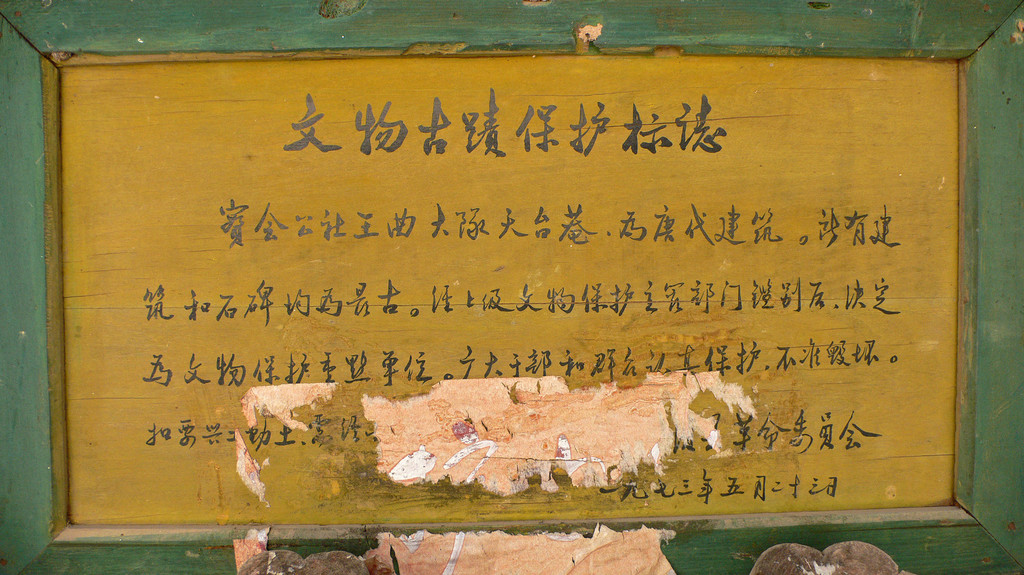 文物古蹟保护标誌
实会公社王曲大隊天台菴、为唐代建筑。所有建
筑和石碑均为最古。经上级文物保护主官部门鑑别后、决定
为文物保护重點单位。广大干部和群众认真保护、不准毁坏。
如要兴工动土、需经 革命委員会
一九七三年五月二十三日